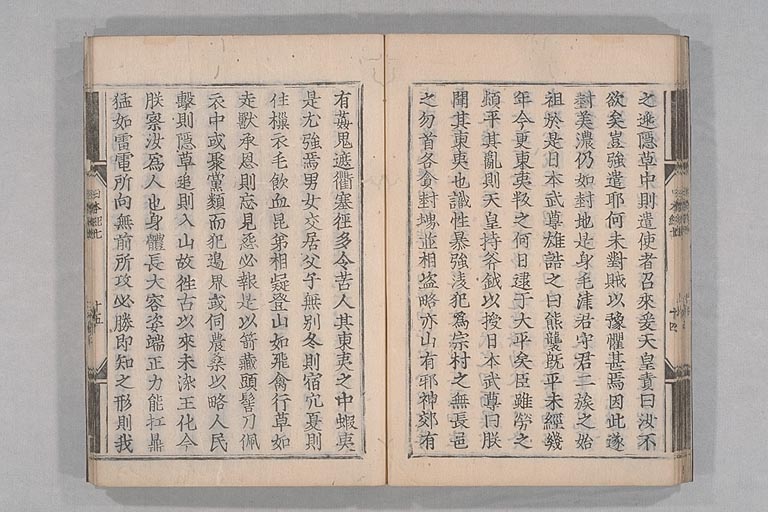 之逃隱草中則遣使者召來爰天皇責曰汝不
欲矣豈強遣耶何未對賊以豫懼甚焉因此遂
封美濃仍如封地是身毛津君守君二族之始
祖於是日本武尊雄誥之曰熊襲既平未經幾
年今更東夷叛之何日逮于大平矣臣雖勞之
頓平其亂則天皇持斧鉞以授日本武尊曰朕
聞其東夷也識性暴強凌犯爲宗村之無長邑
之勿首各貪封堺並相盗略亦山有邪神郊有
有姦鬼遮衢塞徑多令苦人其東夷之中蝦夷
是尤強焉男女交居父子無別冬則宿穴夏則
住樔衣毛飲血昆弟相疑登山如飛禽行草如
走獸承恩則忘見怨必報是以箭藏頭髻刀佩
衣中或聚黨類而犯邊界或伺農桑以略人民
擊則隱草追則入山故徃古以來未染王化今
朕察汝爲人也身體長大容姿端正力能扛鼎
猛如雷電所向無前所攻必勝即知之形則我